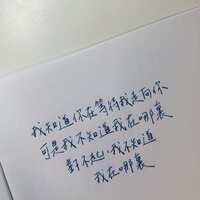 我知道你在等待我走向你
可是我不知道我在哪裏
對不起,我不知道
我在哪裏